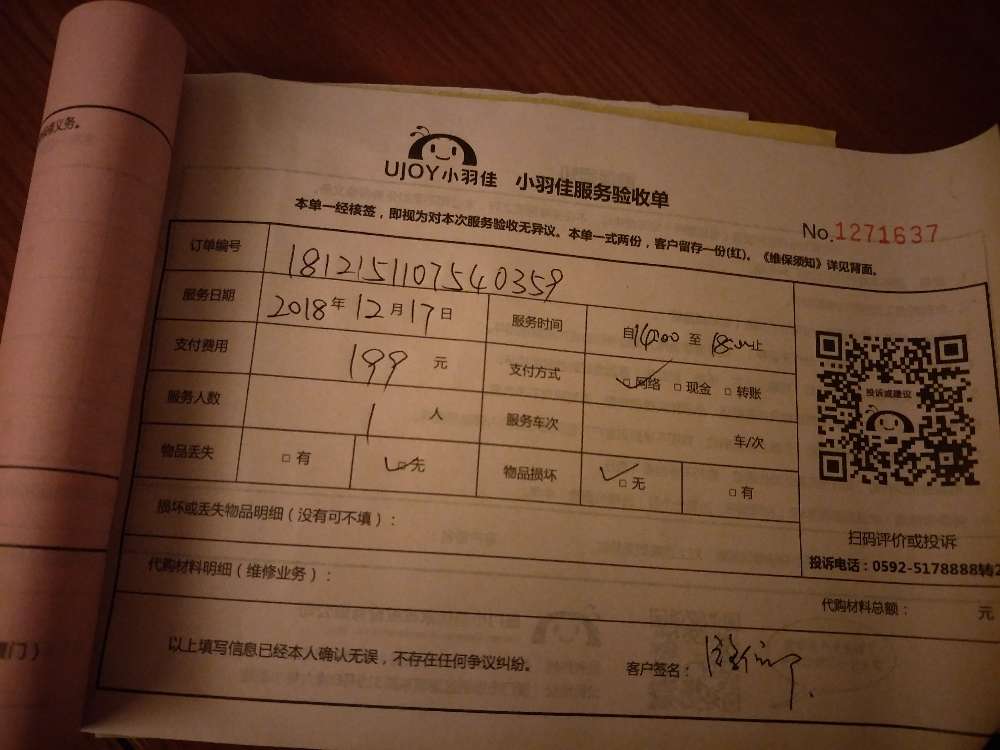 障义务。
UJOY小羽佳 小羽佳服务验收单
本单一经核签，即视为对本次服务验收无异议。本单一式两份，客户留存一份(红)。《维保须知》详见背面。
No.1271637
订单编号 1812151107540359
服务日期 2018年12月17日 服务时间 自14:00至18:00止
支付费用 199元 支付方式 □网络 □现金 □转账
投诉或建议
服务人数 1人 服务车次 车/次
物品丢失 □有 □无 物品损坏 □无 □有
损坏或丢失物品明细（没有可不填）：
扫码评价或投诉
投诉电话：0592-5178888转2
代购材料明细（维修业务）：
代购材料总额： 元
以上填写信息已经本人确认无误，不存在任何争议纠纷。 客户签名：